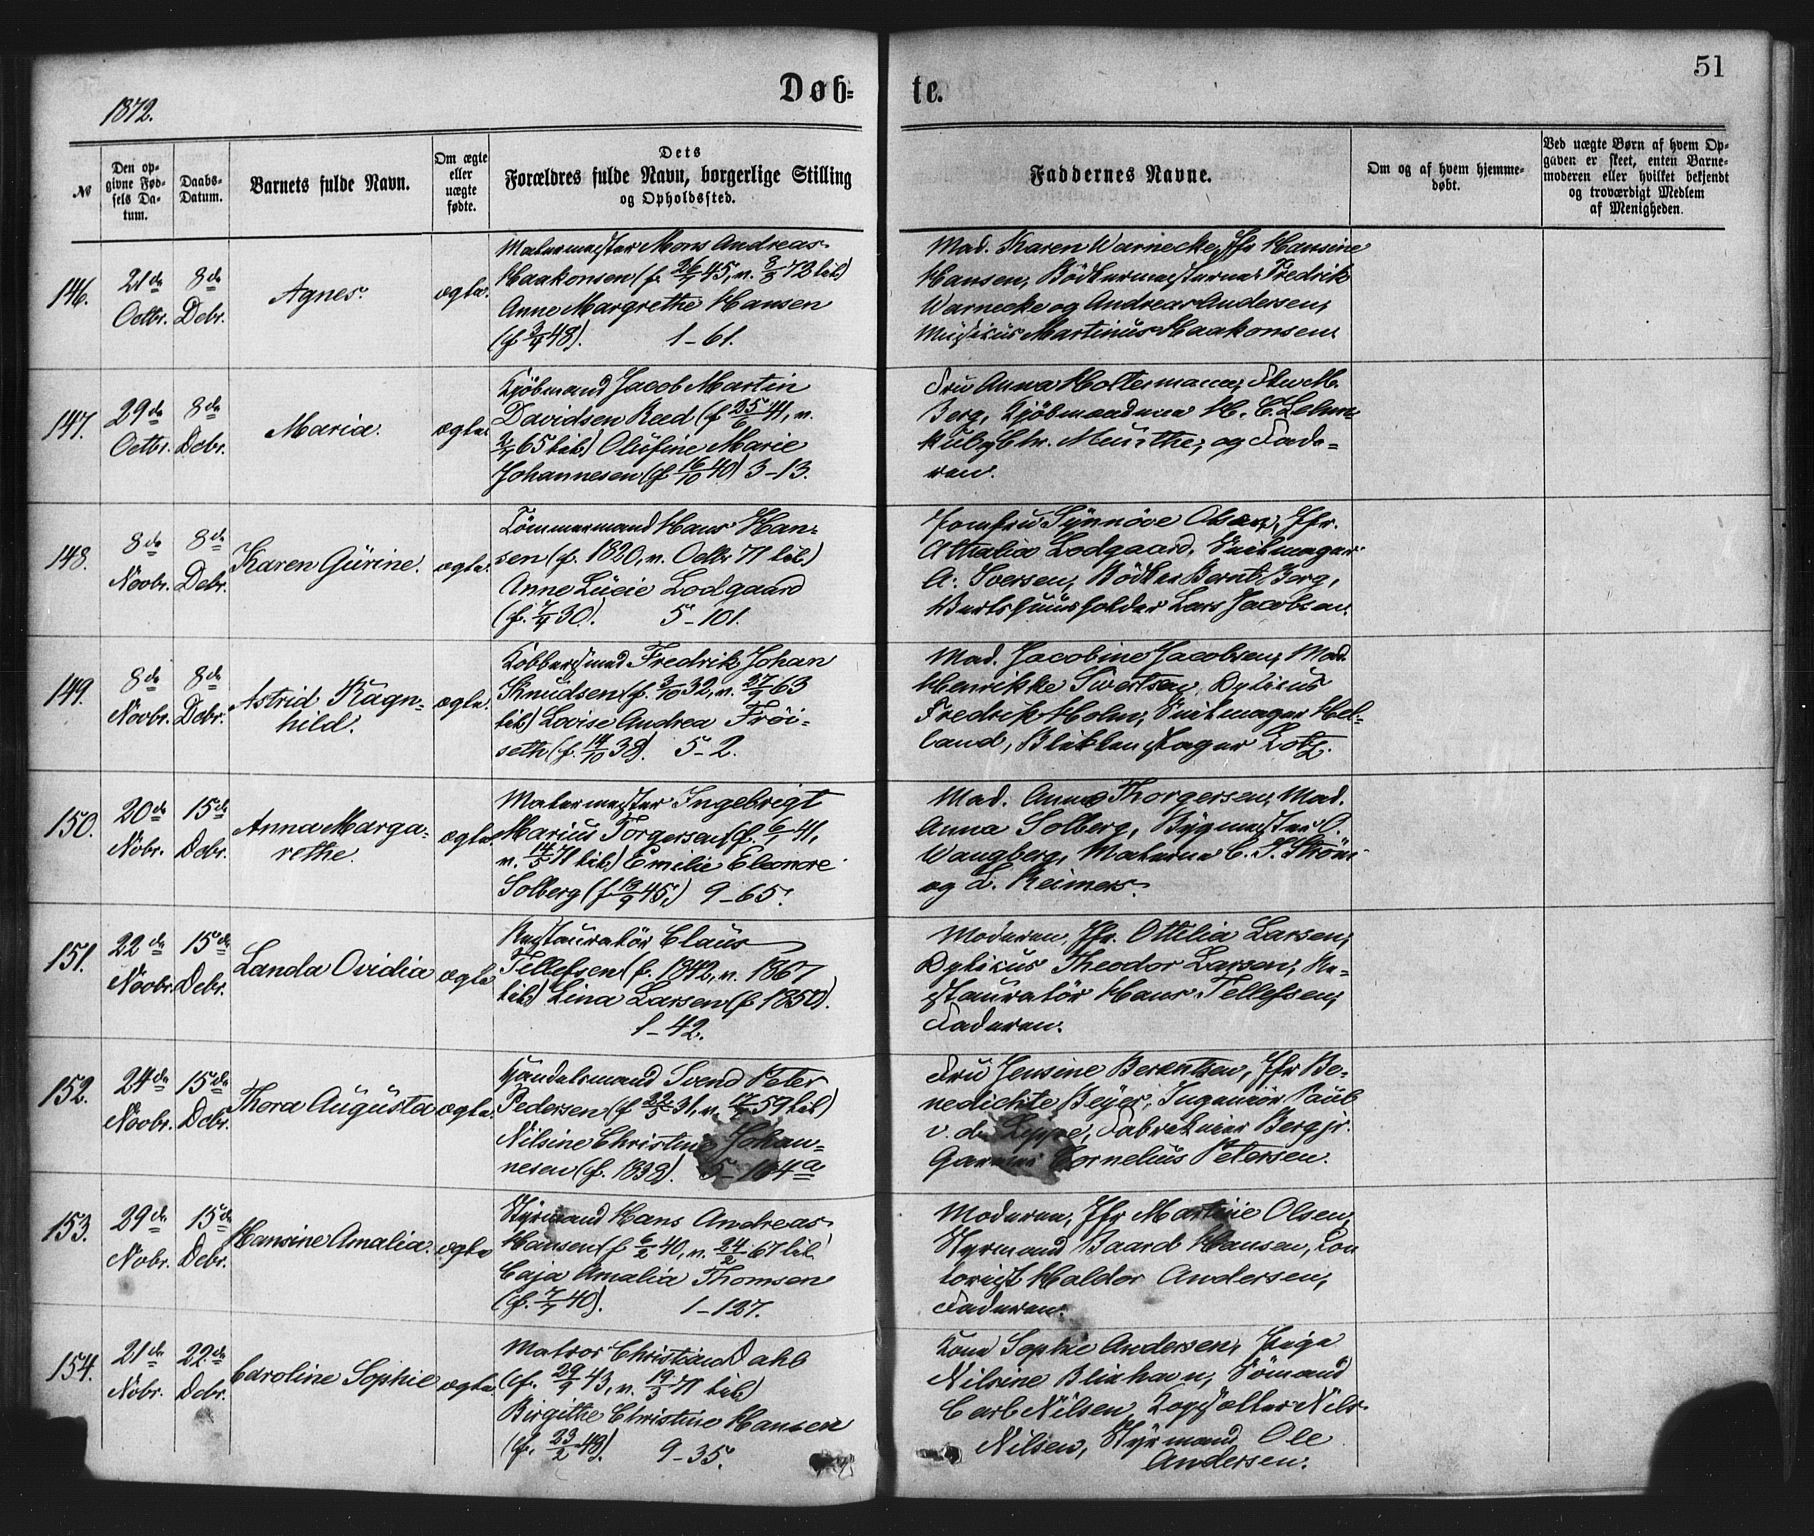 51
1872.
Døb-
te.
№
Den op-
givne Fød-
sels Da-
tum.
Daabs-
Datum.
Barnets fulde Navn.
Om ægte
eller
uægte
fødte.
Dets
Forældres fulde Navn, borgerlige Stilling
og Opholdssted.
Faddernes Navne.
Om og af hvem hjemme-
døbt.
Ved uægte Børn af hvem Op-
gaven er skeet, enten Barne-
moderen eller hvilket bekjendt
og troværdigt Medlem
af Menigheden.
146.
21de
Octbr.
8de
Debr.
Agnes.
ægte.
Malermester Mons Andreas
Haakonsen (f. 26/7 45, v. 8/3 72 lib)
Anne Margrethe Hansen
48). 1-61.
Mad. Karen Warnecke, Jfr Hansine
Hansen, Bødkermesterne Fredrik
Warnecke og Andreas Andersen,
Musicus Martinus Haakonsen.
147.
29de
Octbr.
8de
Debr.
Maria.
ægte
Kjøbmand Jacob Martin
Davidsen Reed (f 25/6 41, v.
65 lib.) Olufine Marie
Johannesen (f. 16/10 40) 3-13.
Fru Anna Holtermann,
Berg, Kjøbmændene H. C.
Chr. Meurthe, og Fade-
ren.
148.
8de
Novbr.
8de
Debr.
Karen Gurine.
ægte.
Tømmermand Hans Han-
sen (f. 1820, v. Octbr 71 lib.)
Anne Lucie Lodgaard
(f. 7/9 30). 5-101.
Jomfru Synnöve Olsen, Jfr.
Athalia Lodgaard, Snitmager
A. Iversen, Bødker Bernt Berg,
Vertshuusholder Lars Jacobsen.
149.
8de
Novbr.
8de
Debr.
Astrid Ragn-
hild.
ægte.
Kobbersmed Fredrik Johan
Knudsen (f. 3/10 32, v. 27/9 63
lib) Lovise Andrea Fröi-
seth (f. 38). 5-2.
Mad. Jacobine Jacobsen, Mad.
Henrikke Sivertsen, Dylicus
Fredrik Holm, Snitmager Hel-
land, Blikkenslager Lotz.
150.
20de
Nobr.
15de
Debr.
Anna Marga-
rethe.
ægte
Malermester Ingebrigt
Marius Torgersen (f. 6/1 41,
v. 14/5 71 lib.) Emilie Eleonore
Solberg (f. 45.) 9-65.
Mad. Anna Thorgersen, Mad.
Anna Solberg, Bygmester O.
Wangberg, Malerne C. S. Ström
og L. Reimers.
151.
22de
Novbr.
15de
Debr.
Landa Ovidia
ægte
Restauratør Claus
Tellefsen (f. 1842, v. 1867
lib) Lina Larsen (f 1850).
1-42.
Moderen, Jfr. Ottilia Larsen,
Dylicus Theodor Larsen, Re-
stauratör Hans Tellefsen,
Faderen.
152.
24de
Novbr.
15de
Debr.
Thora Augusta
ægte
Handelsmand Svend Peter
Pedersen (f 31, v. 59 lib)
Nilsine Christine Johan-
nesen (f. 1839). 5-104a
Fru Jensine Berentsen, Jfr Be-
nedichte Beyer, Ingeniør Paul
v. d. Lippe, Fabrikeier Berg jr.
Garver Cornelius Petersen.
153.
29de
Nobr.
15de
Debr.
Hansine Amalia.
ægte
Styrmand Hans Andreas
Hansen (f 6/2 40, v. 24/2 67 lib
Caja Amalia Thomsen
(f. 7/7 40). 1-127.
Moderen, Jfr Martine Olsen,
Styrmand Baard Hansen, Con
torist Haldor Andersen,
Faderen.
154.
21de
Nobr.
22de
Debr.
Caroline Sophie
ægte
Matros Christian Dahl
(f. 29/9 43, v. 19/3 71 lib)
Birgithe Christine Hansen
(f. 23/2 48). 9-35.
Kone Sophie Andersen, Pige
Nilsine Blixhavn, Sömand
Carl Nilsen, Nils
Nilsen, Styrmand Ole
Andersen.